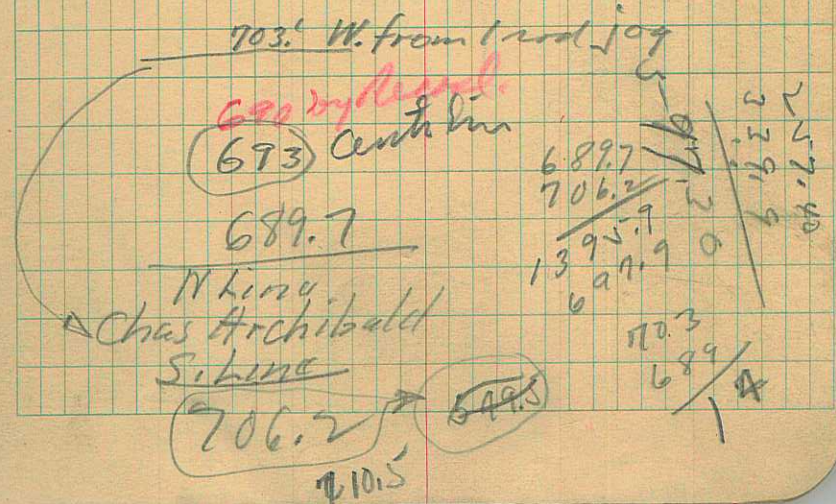 703.' W. from 1 rod jog
690 by Record.
693 Cent Line
689.7
N Line
Chas Archibald
S. Line
706.2
710.5
689.7
706.2
1395.9
697.9
703
689
14
257.40
339.9